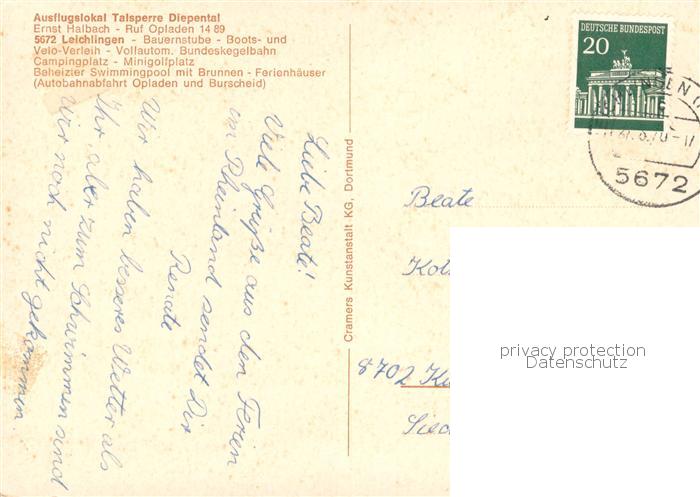 Ausflugslokal Talsperre Diepental
Ernst Halbach - Ruf Opladen 14 89
5672 Leichlingen - Bauernstube - Boots- und
Velo-Verleih - Vollautom. Bundeskegelbahn
Campingplatz - Minigolfplatz
Beheizter Swimmingpool mit Brunnen - Ferienhäuser
(Autobahnabfahrt Opladen und Burscheid)
Liebe Beate!
Viele Grüße aus den Ferien
im Rheinland sendet Dir
Renate
Wir haben besseres Wetter als
Ihr, aber zum Schwimmen sind
wir noch nicht gekommen.
Cramers Kunstanstalt KG, Dortmund
DEUTSCHE BUNDESPOST
20
5672
Beate
8702
privacy protection
Datenschutz